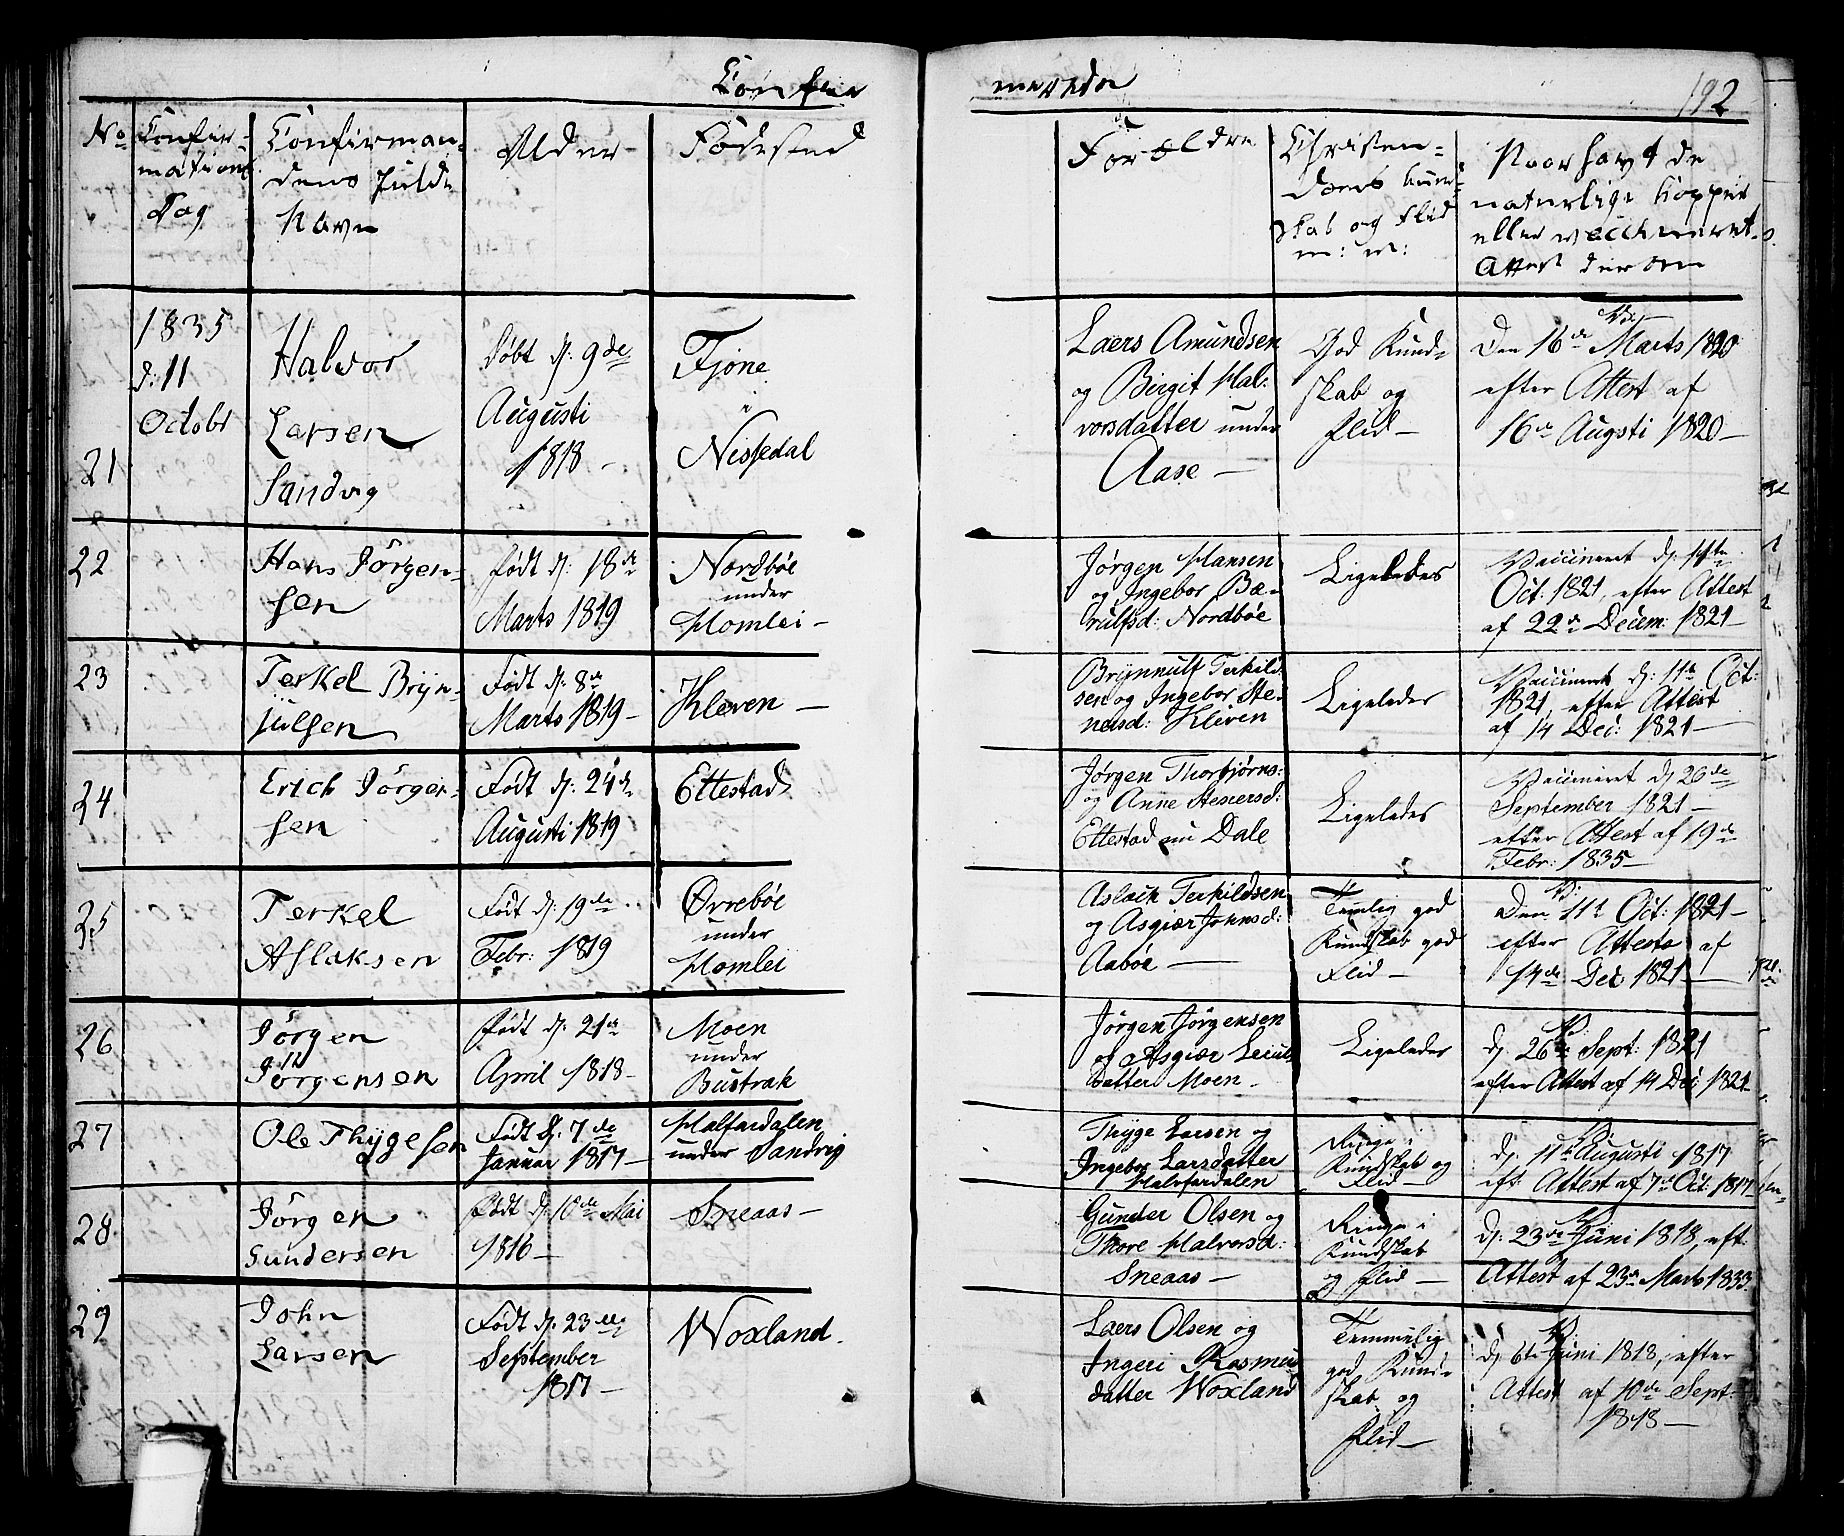 Confir
merede
192
No
Confir-
mations
Dag
Confirman-
dens fulde
Navn
Alder
Fødested
Forældre
Christen-
doms Kund-
skab og Flid
m: v:
Naar havt de
naturlige Kopper
eller vaccineret
Attest derom
21
1835
d: 11
Octobr
Halvor
Larsen
Sandvig
Døbt d: 9de
Augusti
1818 -
Fjone
i
Nissedal
Laers Amundsen
og Birgit Hal:
vorsdatter under
Aase -
God Kund-
skab og
Flid -
V:
Den 16de Marts 1820
efter Attest af
16de Augsti 1820 -
22
Hans Jörgen-
sen
Født d: 18de
Marts 1819
Nordbøe
under
Homlei -
Jørgen Hansen
og Ingebor Bæ-
rulfsd: Nordbøe
Ligeledes
Vaccineret d: 11te
Oct: 1821, efter Attest
af 22de Decem: 1821 -
23
Terkel Bryn-
julsen
Født d: 8de
Marts 1819 -
Kleven -
Brynnulf Terkild-
sen og Ingebor Ste-
nersd: Kleven
Ligeledes
Vaccineret d: 11te Oct:
1821, efter Attest
af 14 Dec: 1821 -
24
Erich Jörgen-
sen
Født d: 24de
Augusti 1819
Ettestad
Jørgen Thorbjørns:
og Anne Stenersd:
Ettestad nu Dale
Ligeledes
Vaccineret d: 26de
September 1821 -
efter Attest af 19de
Febr: 1835 -
25
Terkel
Aslaksen
Født d: 19de
Febr: 1819
Ørrebøe
under
Homlei
Aslach Terkildsen
og Asgiær Johnsd:
Aabøe -
Temlig god
Kundskab god
Flid -
V:
Den 11te Oct: 1821 -
efter Attest af
14de Dec: 1821 -
26
Jörgen
Jörgensen
Født d: 21de
April 1818 -
Moen
under
Bustrak
Jørgen Jørgensen
og Asgiær
datter Moen -
Ligeledes
V:
d: 26de Sept: 1821
efter Attest af 14 Dec: 1821 -
27
Ole Thygesen
Født d: 7de
Januar 1817 -
Halfardalen
under Sandvig
Thyge Larsen og
Ingebor Larsdatter
Halvfardalen
Ringe i
Kundskab og
Flid -
V:
d: 11te Augusti 1817
eft: Attest af 7de Oct: 1817 -
28
Jörgen
Gundersen
Født d: 10de Mai
1816 -
Sneaas -
Gunder Olsen og
Thore Halvorsd:
Sneaas -
Ringe i
Kundskab
og Flid -
V:
d: 23de Juni 1818, eft:
Attest af 23de Marts 1833
29
John
Larsen
Født d: 23de
September
1817 -
Woxland -
Laers Olsen og
Ingeri Rasmus
datter Woxland
Temmelig
god Kund-
skab og
Flid -
V:
d: 6te Juni 1818, efter
Attest af 10de Sept:
1818 -